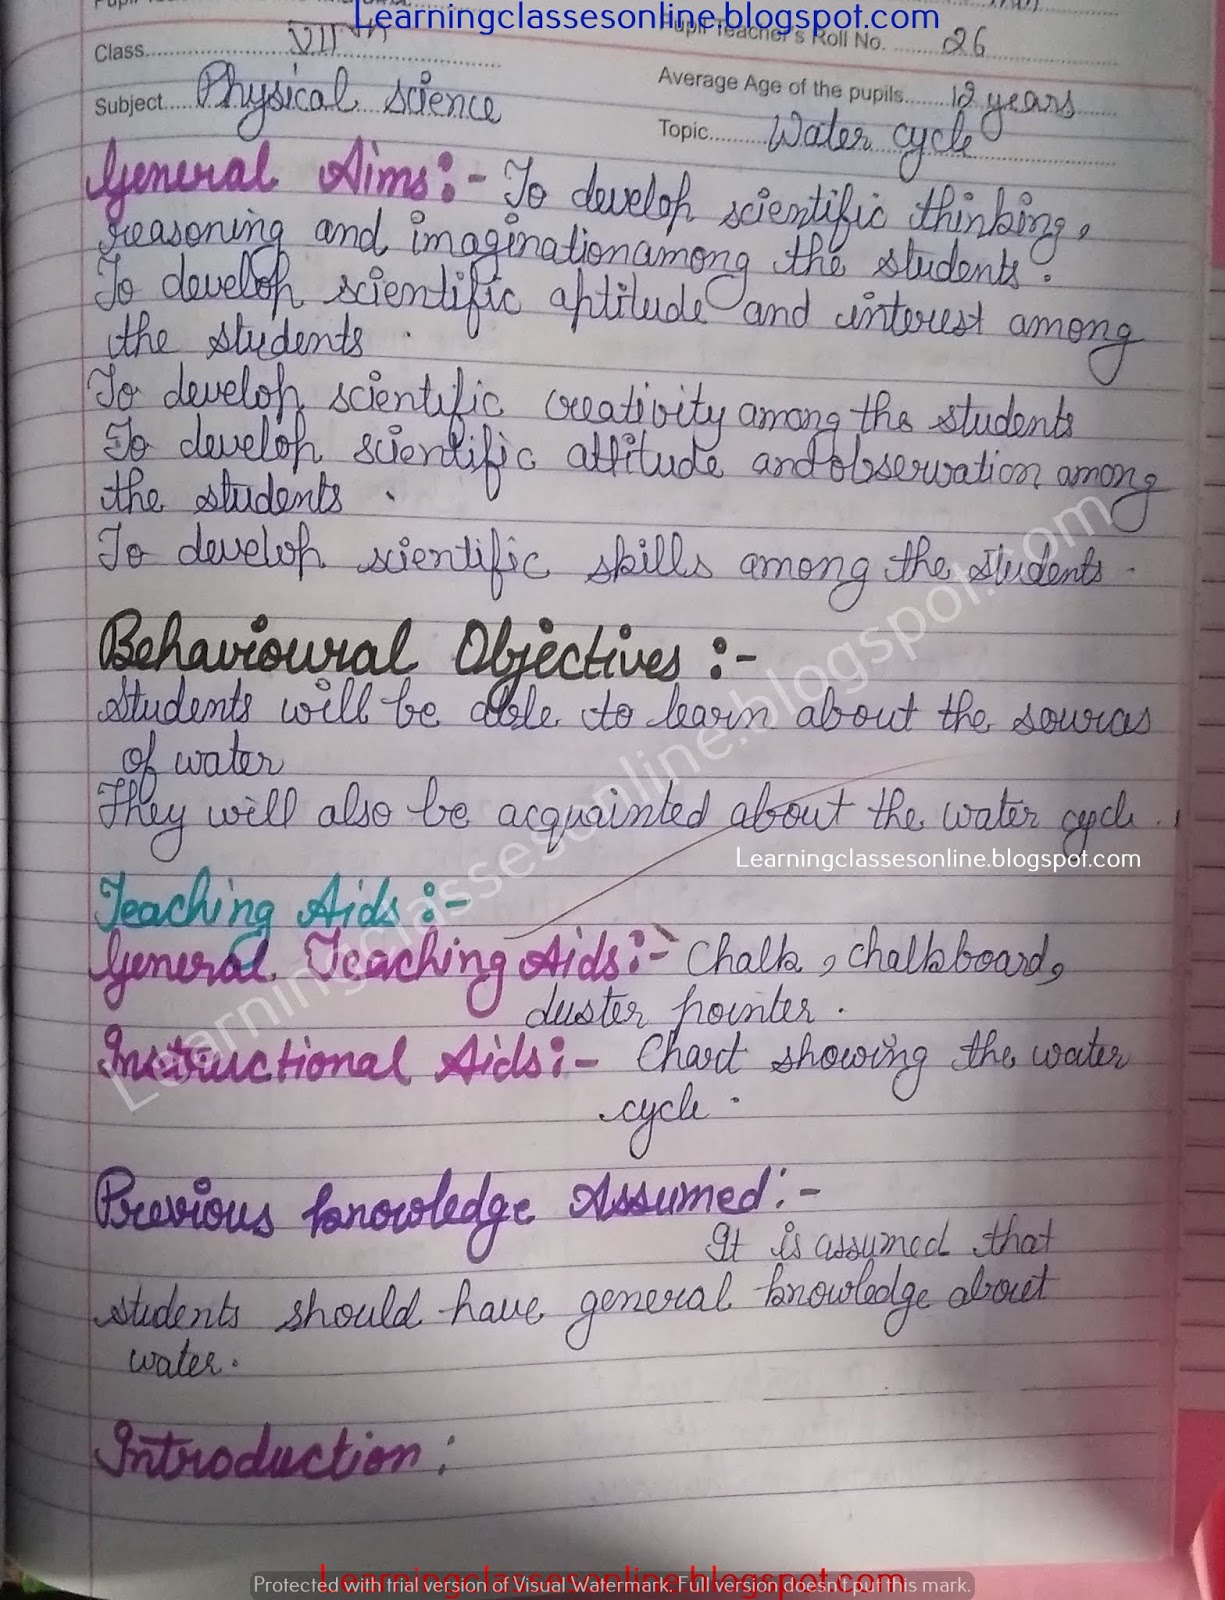 Learningclassesonline.blogspot.com
Class VIIth
Pupil Teacher's Roll No. 26
Subject Physical science
Average Age of the pupils 12 years
Topic Water cycle
General Aims:- To develop scientific thinking,
reasoning and imagination among the students.
To develop scientific aptitude and interest among
the students.
To develop scientific creativity among the students
To develop scientific attitude and observation among
the students.
To develop scientific skills among the students.
Behavioural Objectives :-
Students will be able to learn about the sources
of water
They will also be acquainted about the water cycle.
Learningclassesonline.blogspot.com
Teaching Aids :-
General Teaching Aids:- Chalk, chalkboard,
duster pointer.
Instructional Aids:- Chart showing the water
cycle.
Previous knowledge Assumed:-
It is assumed that
students should have general knowledge about
water.
Introduction:
Learningclassesonline.blogspot.com
Learningclassesonline.blogspot.com
Protected with trial version of Visual Watermark. Full version doesn't put this mark.